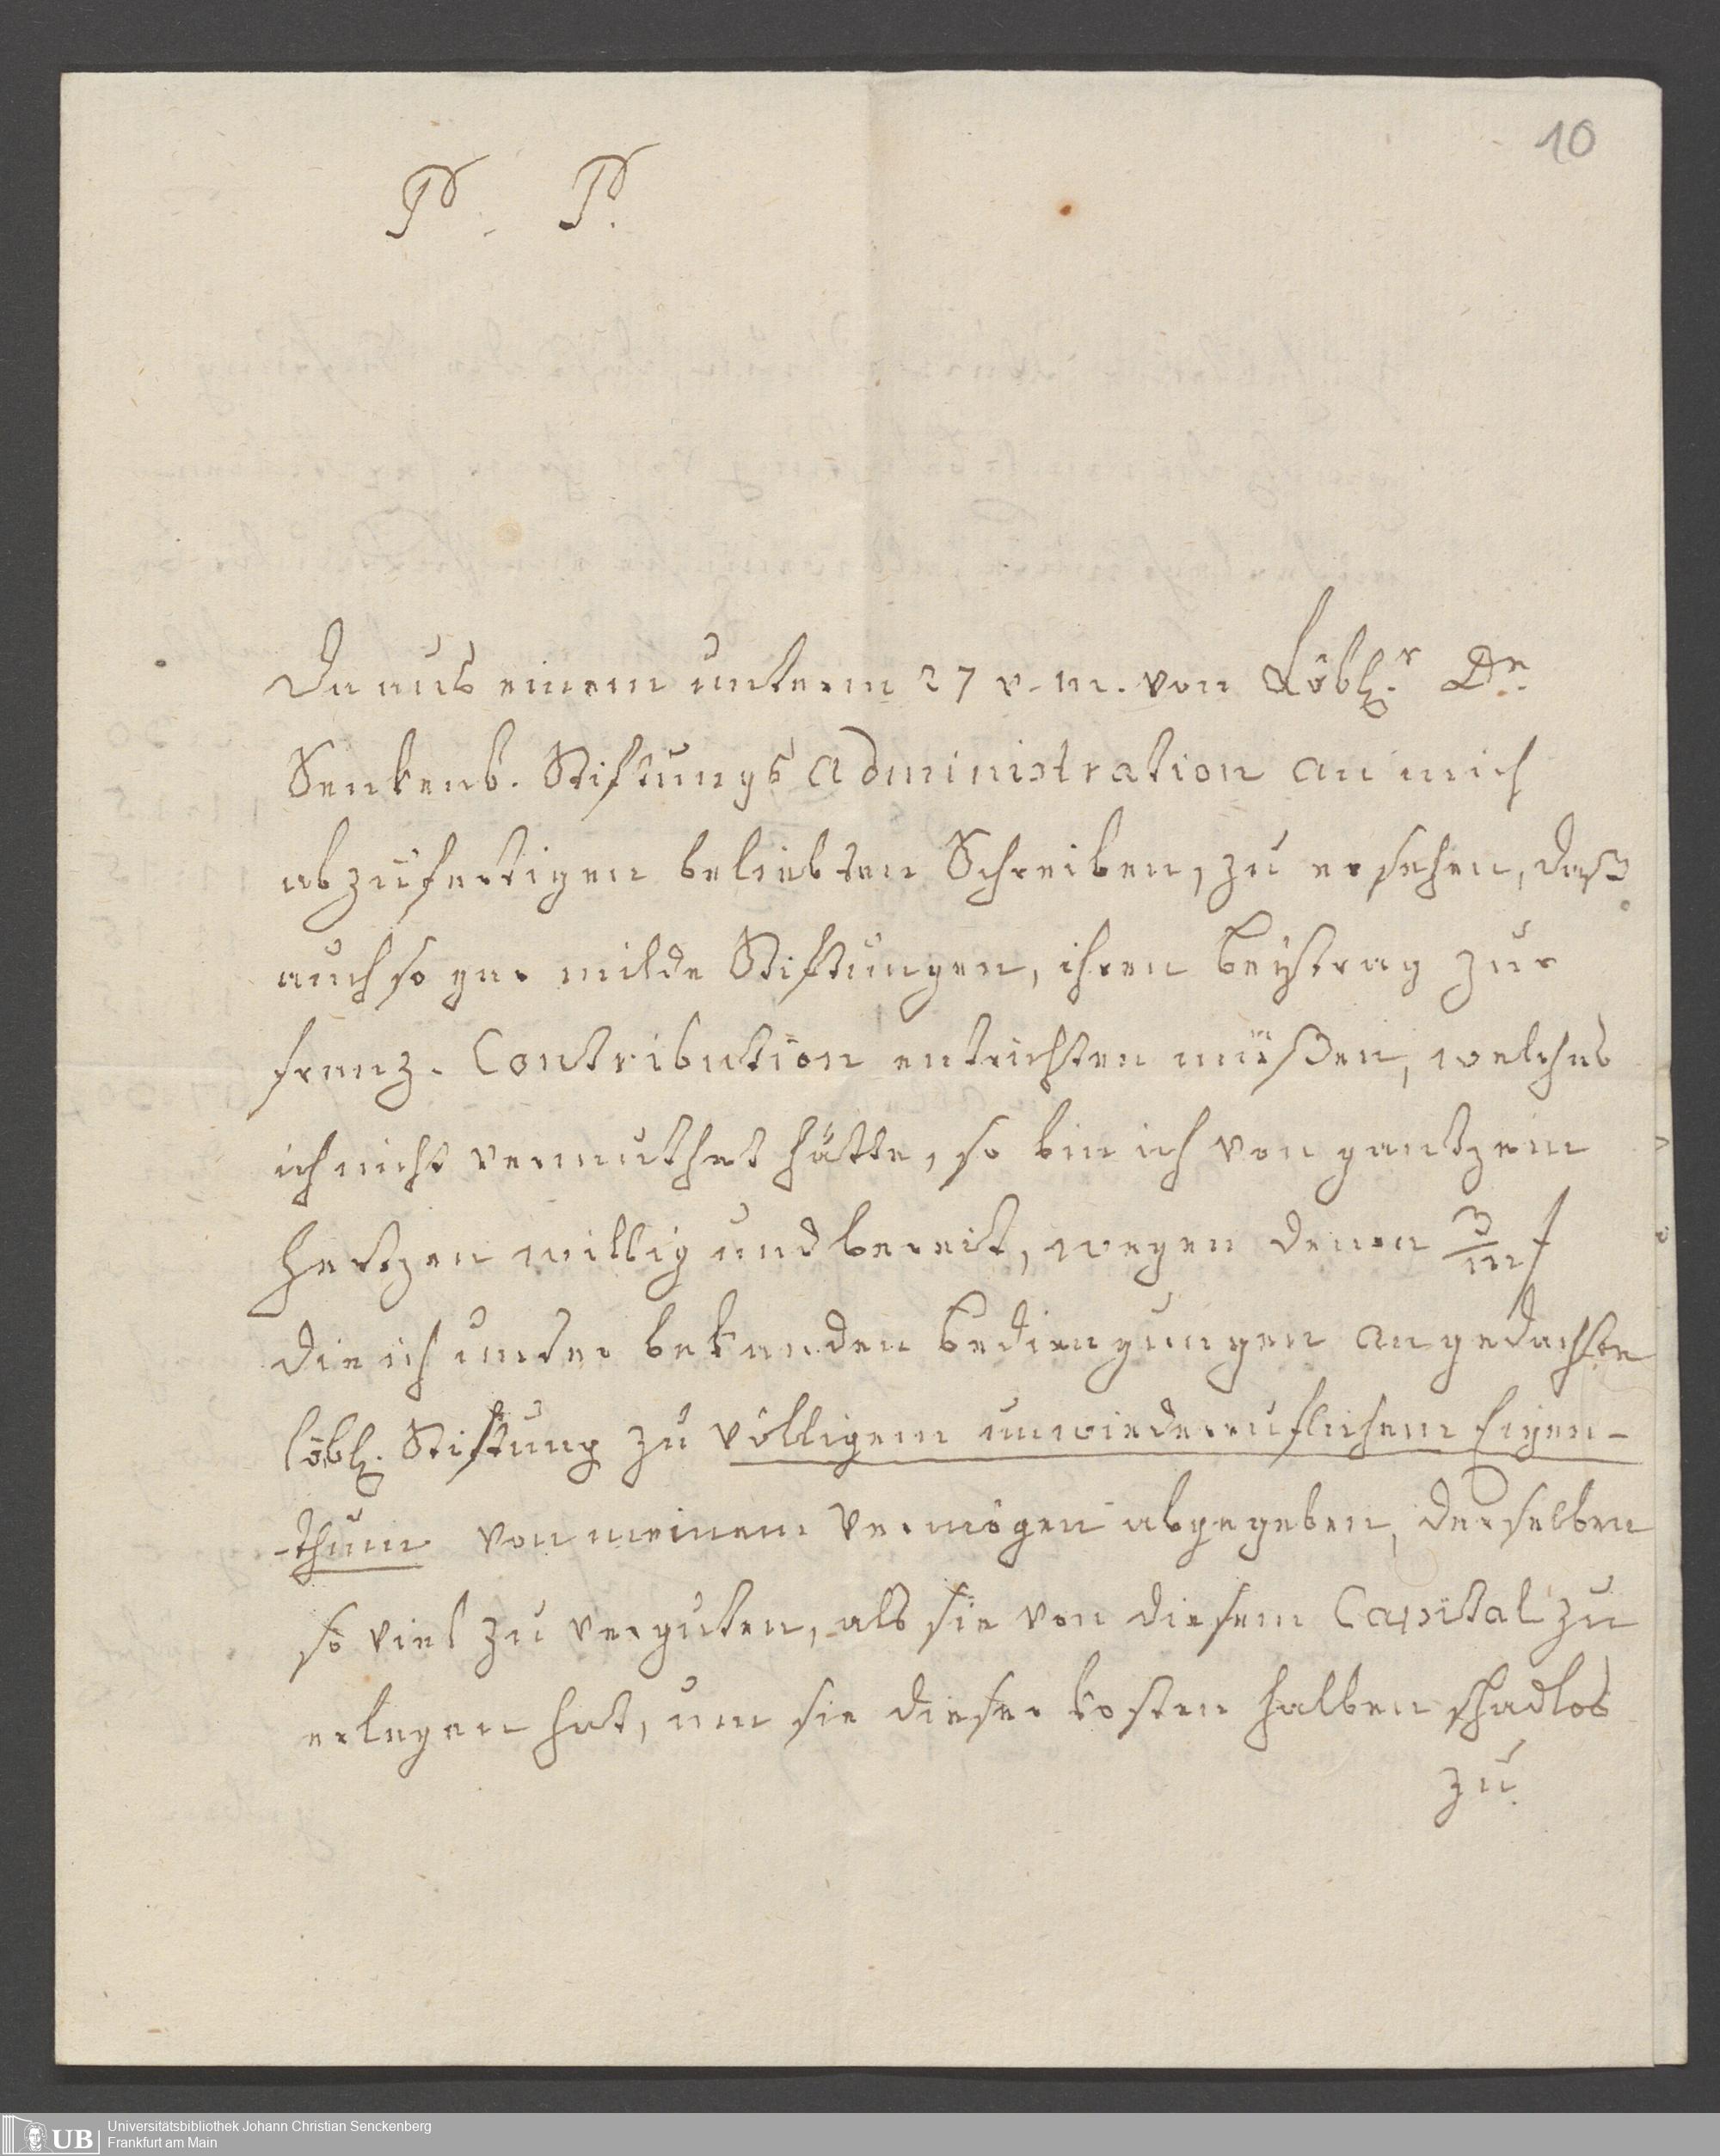 10
P. P.
Da aus einem unterm 27 v. m. von Löbl.r Dr.
Senkenb. Stiftungs Administration an mich
abzufertigen beliebten Schreiben, zu ersehen, daß
auch so gar milde Stiftungen, ihren Beÿtrag zur
franz. Contribution entrichten müßen, welches
ich nicht vermuthet hätte, so bin ich von gantzem
Hertzen willig und bereit, wegen denen 3/m f
die ich unter bekanden Bedingungen an gedachte
löbl. Stiftung zu völligem unwiederruflichem Eigen-
-thum von meinem Vermögen abgegeben, derselben
so viel zu verguten, als sie von diesem Capital zu
erlegen hat, um sie dieser kosten halben schadlos
zu
UB
Universitätsbibliothek Johann Christian Senckenberg
Frankfurt am Main